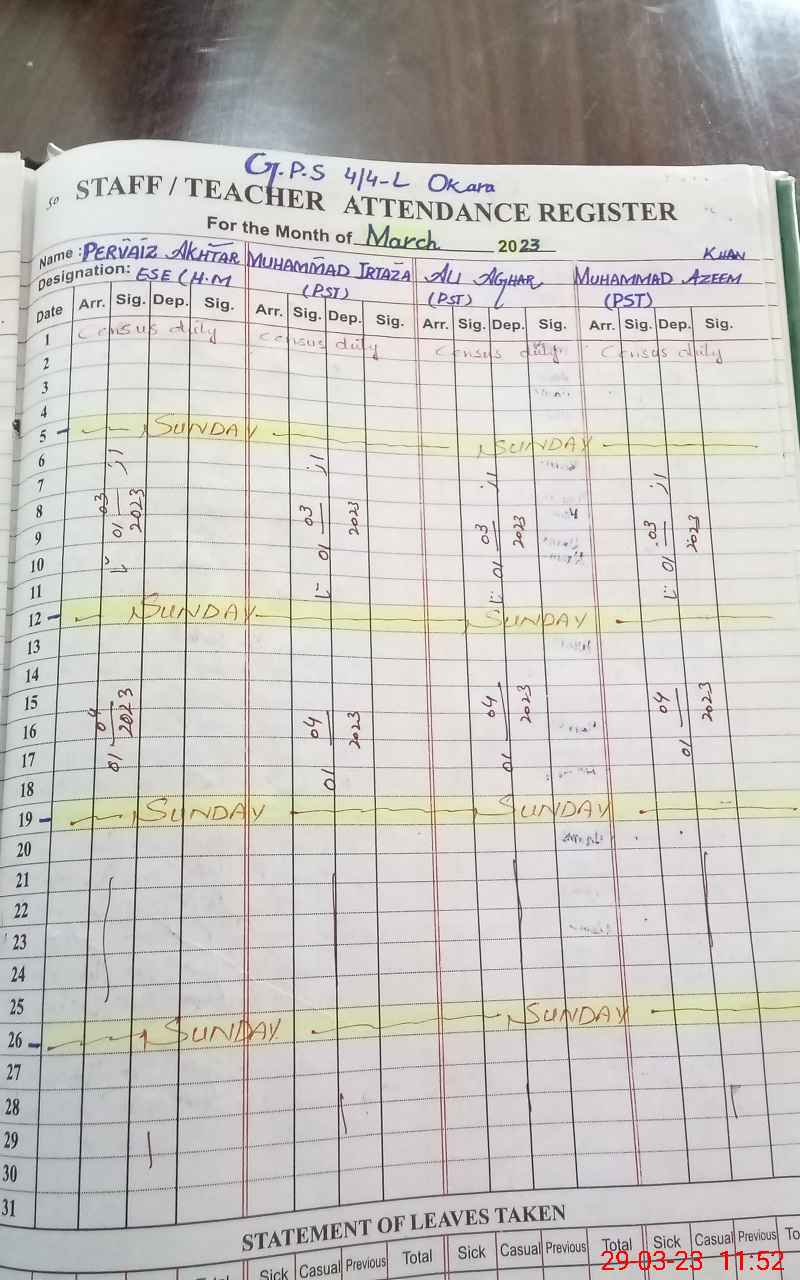 G.P.S 4/4-L Okara
50 STAFF / TEACHER ATTENDANCE REGISTER
For the Month of March 2023
Name : PERVAIZ AKHTAR MUHAMMAD IRTAZA ALI AGHAR MUHAMMAD AZEEM KHAN
Designation: ESE (H.M (PST) (PST) (PST)
Date Arr. Sig. Dep. Sig. Arr. Sig. Dep. Sig. Arr. Sig. Dep. Sig. Arr. Sig. Dep. Sig.
1 Census duty Census duty Census duty Census duty
2
3
4
5 SUNDAY SUNDAY
6
7
8
9
10
11
12 SUNDAY SUNDAY
13
14
15
16
17
18
19 SUNDAY SUNDAY
20
21
22
23
24
25
26 SUNDAY SUNDAY
27
28
29
30
31
01 03 2023 01 03 2023 01 03 2023 01 03 2023
01 04 2023 01 04 2023 01 04 2023 01 04 2023
STATEMENT OF LEAVES TAKEN
Total Sick Casual Previous Total Sick Casual Previous Total Sick Casual Previous
29-03-23 11:52